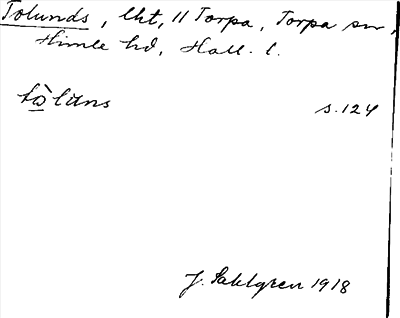 Tolunds, lht, 11 Torpa, Torpa sn,
Himle hd, Hall. l.
s. 124
J. Sahlgren 1918